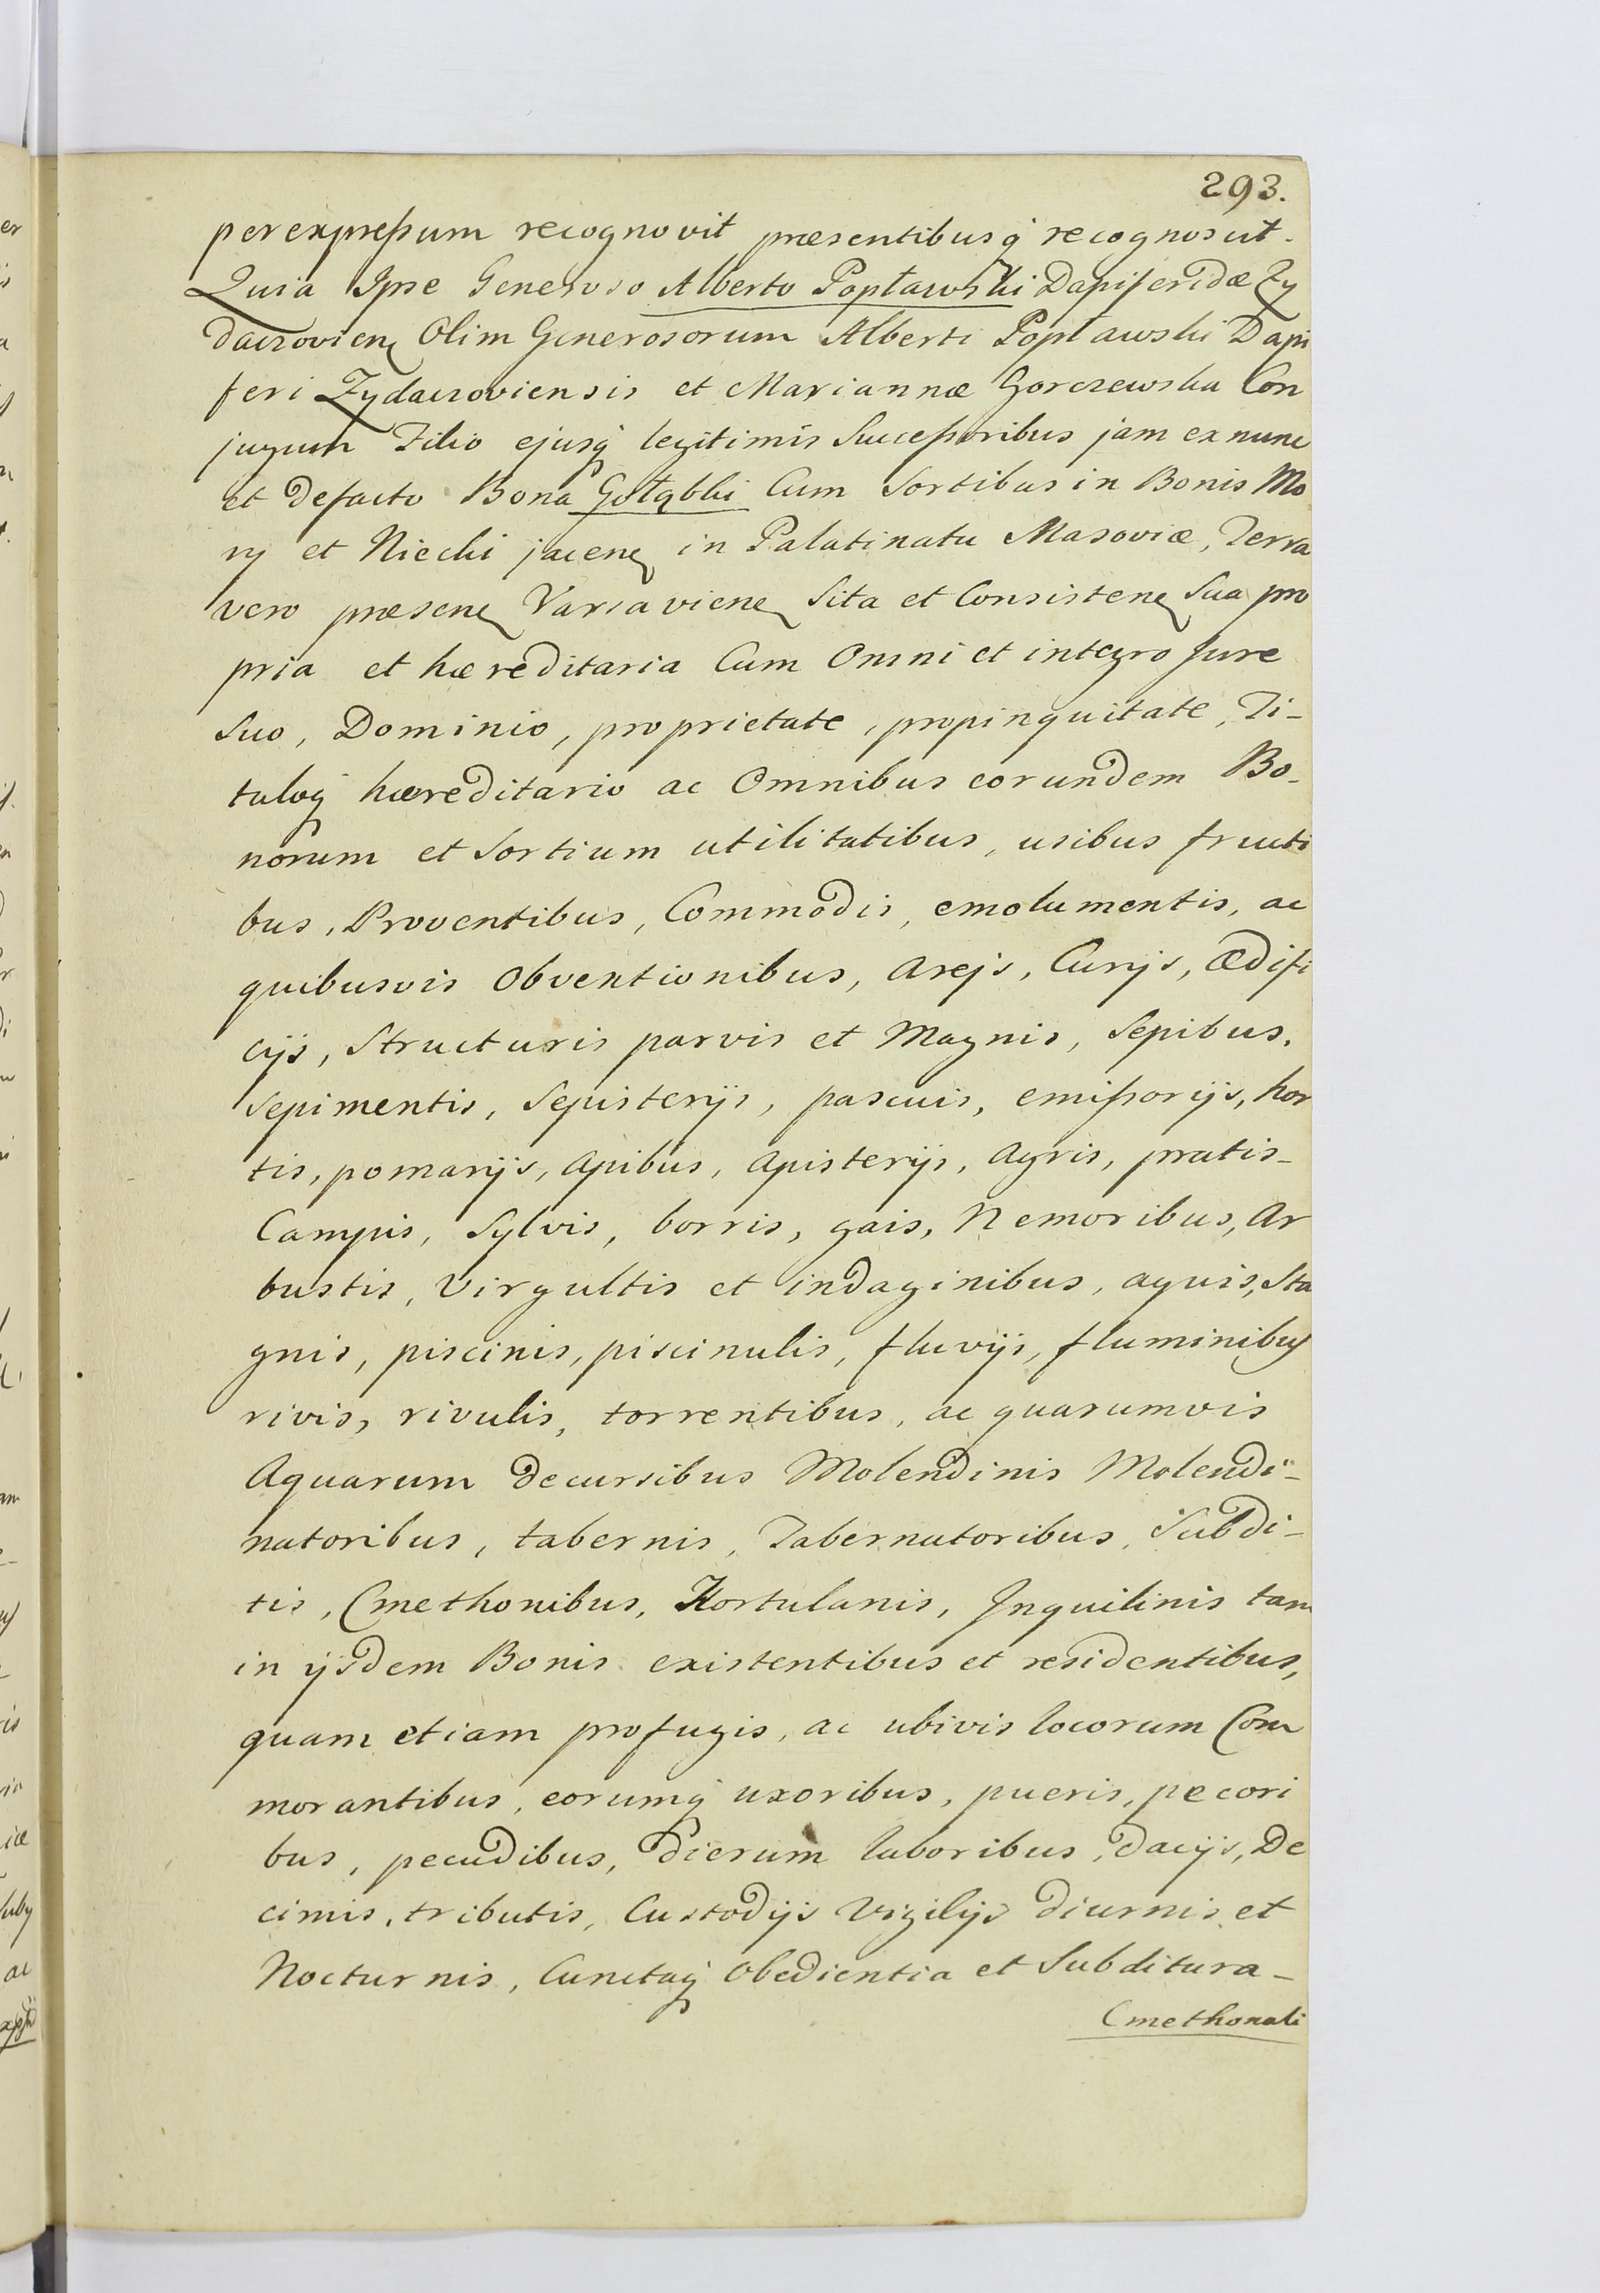 293.
per expreſsum recognovit præsentibusq́ recognoscit.
Quia Ipse Generoso Alberto Popławski Dapiferidæ Zy
daczovien Olim Generosorum Alberti Popławski Dapi
feri Zydaczoviensis et Mariannæ Gorczewska Con
jugum Filio ejusq́ legitimis Succeſsoribus jam ex nunc
et defacto Bona Gołąbki Cum Sortibus in Bonis Mo
ry et Niecki jacen in Palatinatu Masoviæ, Terra
vero præsen Varsavien Sita et Consisten Sua pro
pria et hæreditaria Cum Omni et integro Jure
Suo, Dominio, proprietate, propinquitate, Ti-
tuloq́ hæreditario ac Omnibus eorundem Bo-
norum et Sortium utilitatibus, usibus fructi
bus, Proventibus, Commodis, emolumentis, ac
quibusvis Obventionibus, Arejs, Curijs, Ædifi
cijs, Structuris parvis et Magnis, Sepibus,
Sepimentis, Sepisterijs, pascuis, emiſsorijs, hor
tis, pomarijs, Apibus, Apisterijs, Agris, pratis-
Campis, Sylvis, borris, gais, Nemoribus, Ar
bustis, Virgultis et indaginibus, aquis, Sta
gnis, piscinis, piscinulis, fluvijs, fluminibus
rivis, rivulis, torrentibus, ac quarumvis
Aquarum decursibus Molendinis Molendi-
natoribus, tabernis, Tabernatoribus, Subdi-
tis, Cmethonibus, Hortulanis, Inquilinis tam
in ijsdem Bonis existentibus et residentibus,
quam etiam profugis, ac ubivis locorum Com
morantibus, eorumq́ uxoribus, pueris, pecori
bus, pecudibus, dierum laboribus, dacijs, De
cimis, tributis, Custodijs Vigilijs diurnis et
Nocturnis, Cunctaq́ Obedientia et Subditura-
Cmethonali